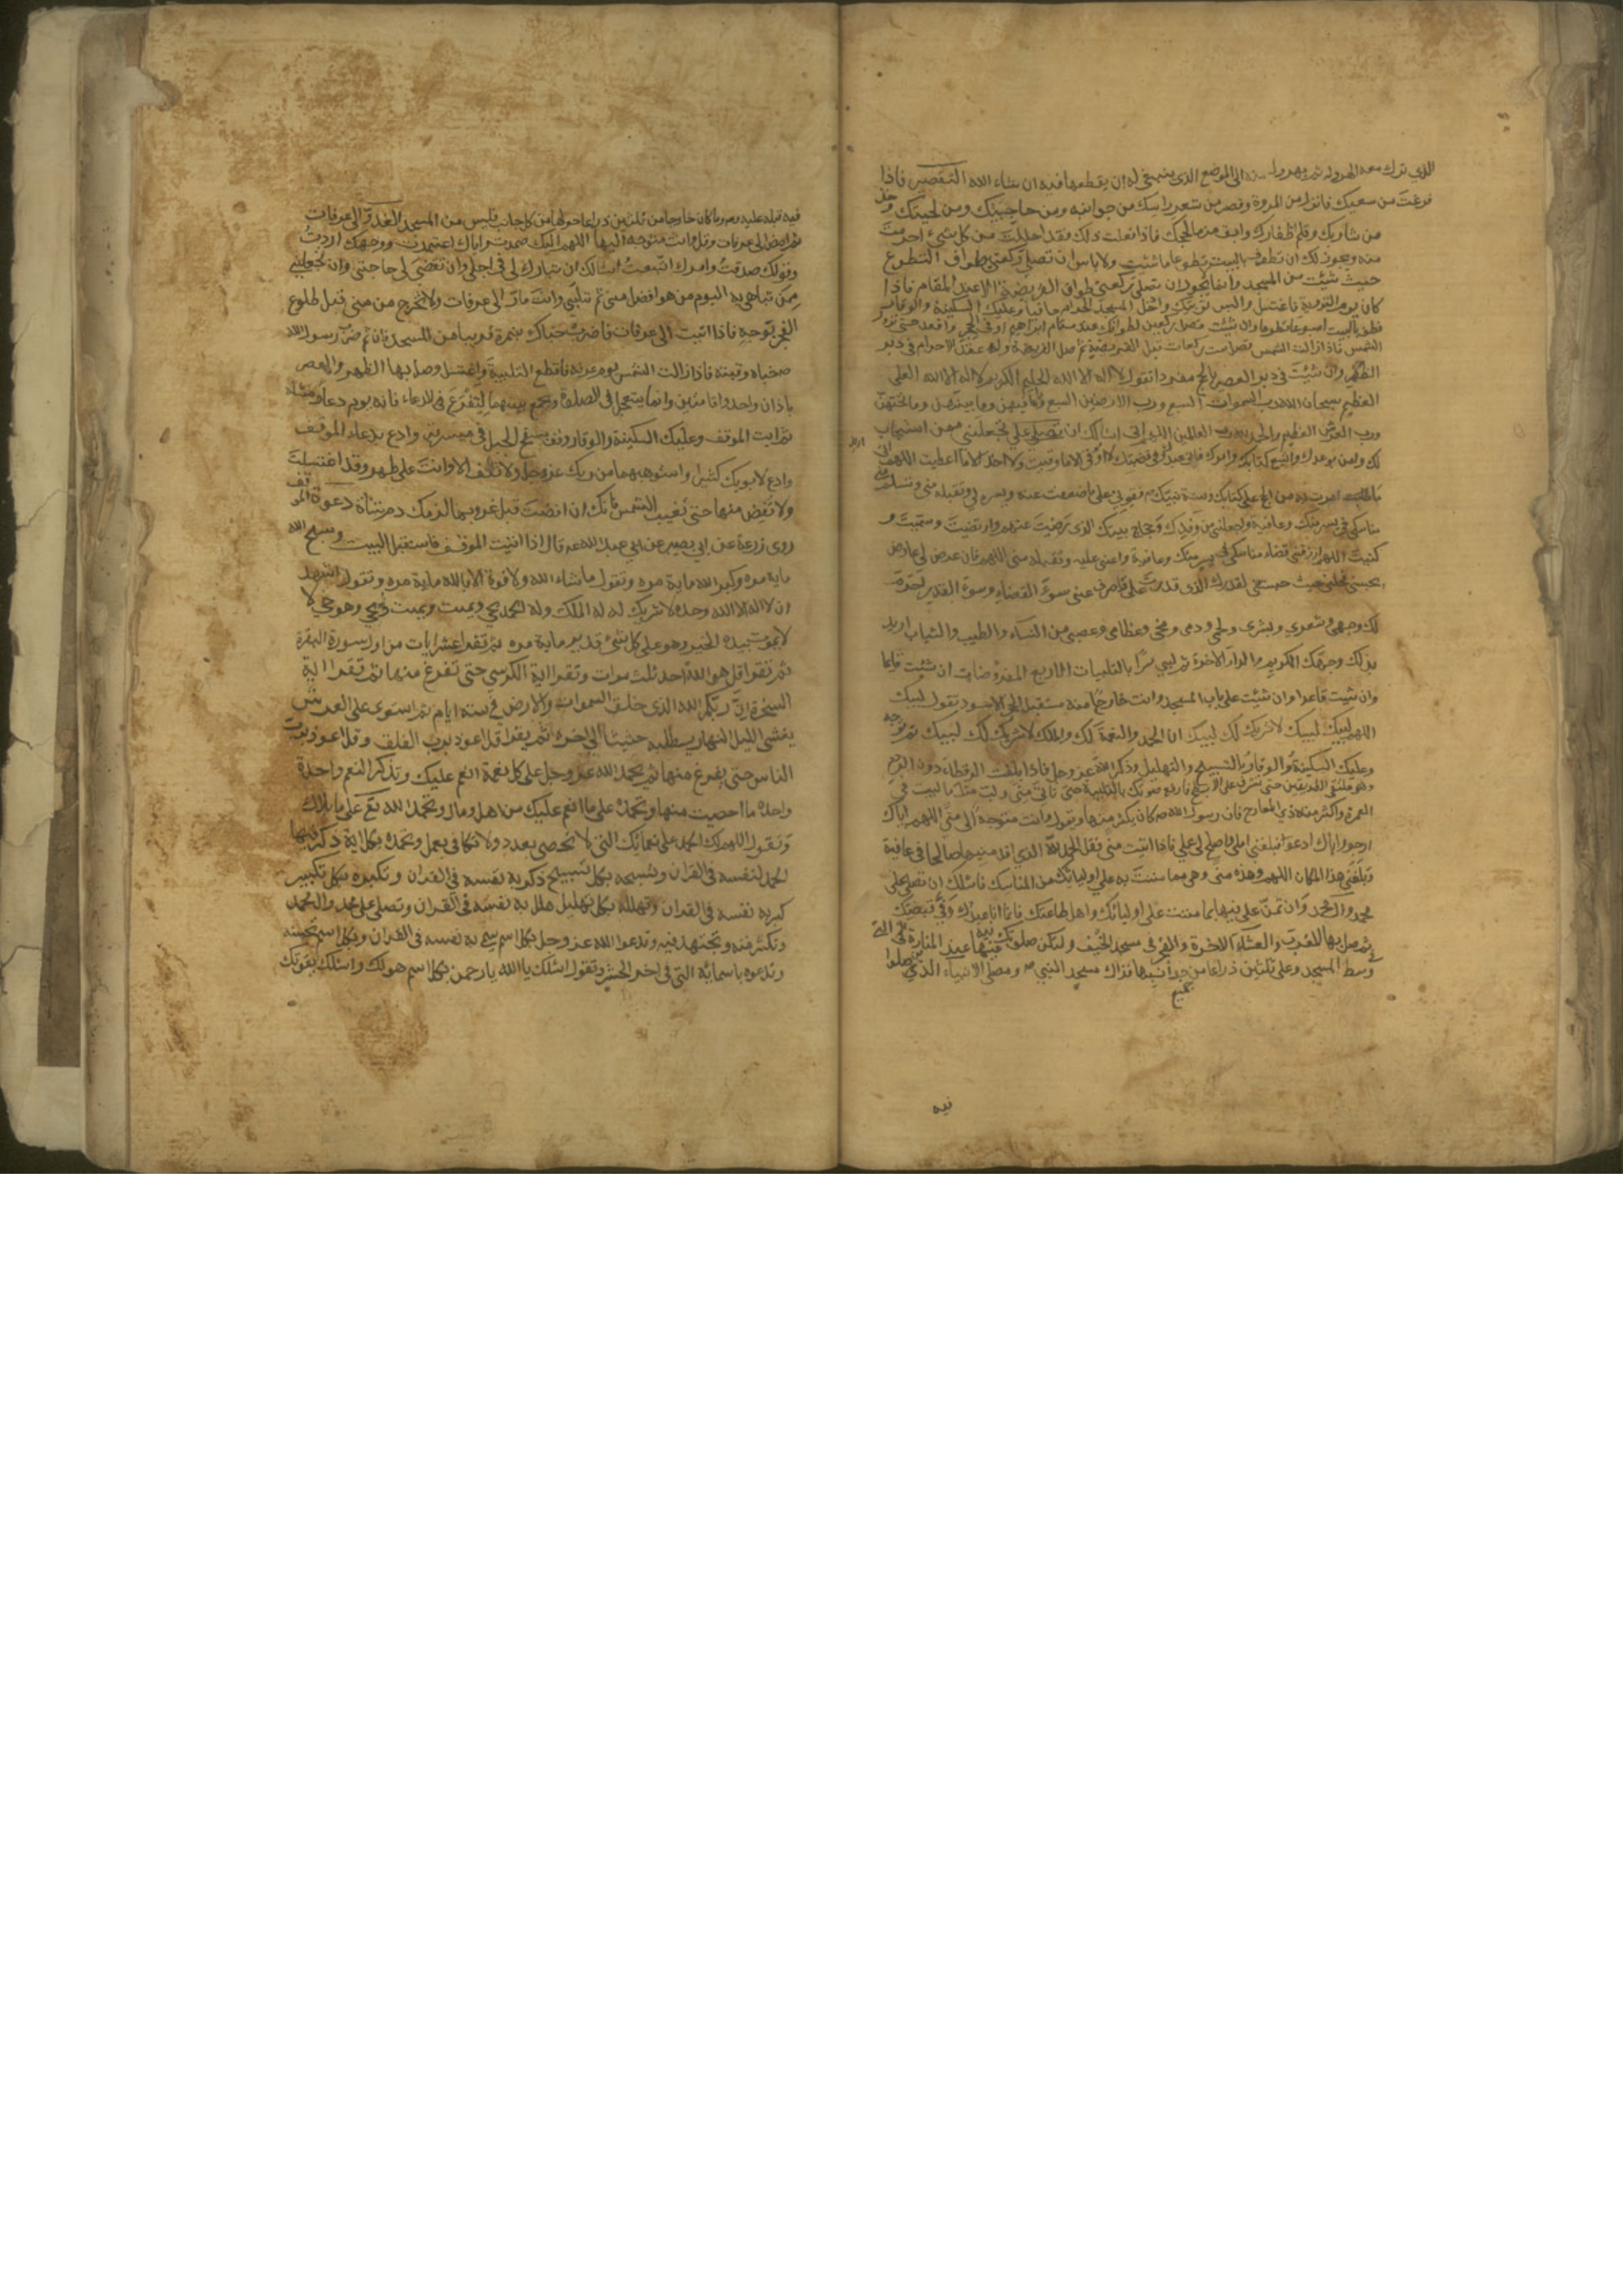 الذي ترك معه الهرولة ثم يهرول منه الى الموضع الذي ينبغي له ان يقطعها فيه ان شاء الله التقصير فاذا
فرغت من سعيك فانزل من المروة وقصر من شعر راسك من جوانبه ومن حاجبيك ومن لحيتك وخذ
من شاربك وقلم اظفارك وابق منها لحجك فاذا فعلت ذلك فقد احللت من كل شيء احرمت
منه ويجوز لك ان تطوف بالبيت تطوعا ما شئت ولا باس ان تصلي ركعتي طواف التطوع
حيث شئت من المسجد وانما يجوز ان تصلي ركعتي طواف الفريضة الا عند المقام فاذا
كان يوم التروية فاغتسل والبس ثوبيك وادخل المسجد الحرام حافيا وعليك السكينة والوقار
فطف بالبيت اسبوعا تطوعا وان شئت فصل ركعتين لطوافك عند مقام ابراهيم او في الحجر واقعد حتى تزول
الشمس فاذا زالت الشمس فصل ست ركعات قبل الفريضة ثم صل الفريضة واعقد الاحرام في دبر
الظهر وان شئت في دبر العصر بالحج مفردا تقول لا اله الا الله الحليم الكريم لا اله الا الله العلي
العظيم سبحان الله رب السموات السبع ورب الارضين السبع وما فيهن وما بينهن وما تحتهن
ورب العرش العظيم والحمد لله رب العالمين اللهم اني اسالك ان تجعلني ممن استجاب
لك وامن بوعدك واتبع كتابك وامرك فاني عبدك وفي قبضتك لا اوقى الا ما وقيت ولا اخذ الا ما اعطيت اللهم اني
اريد ما امرت به من الحج على كتابك وسنة نبيك فقوني على ما ضعفت عنه ويسره لي وتقبله مني وتسلم مني
مناسكي في يسر منك وعافية واجعلني من وفدك وحجاج بيتك الذي رضيت عنهم وارتضيت وسميت و
كتبت اللهم ارزقني قضاء مناسكي في يسر منك وعافية واعني عليه وتقبله مني اللهم فان عرض لي عارض
يحبسني فحلني حيث حبستني لقدرك الذي قدرت علي فاصرف عني سوء القضاء وسوء القدر احرم
لك وجهي وشعري وبشري ولحمي ودمي ومخي وعظامي وعصبي من النساء والطيب والثياب اريد
بذلك وجهك الكريم والدار الاخرة ثم لبي سرا بالتلبيات الاربع المفروضات ان شئت قايما
وان شيت قاعدا وان شئت على باب المسجد وانت خارج منه مستقبل الحجر الاسود تقول لبيك
اللهم لبيك لبيك لا شريك لك لبيك ان الحمد والنعمة لك والملك لا شريك لك لبيك ثم توجه
وعليك السكينة والوقار بالتسبيح والتهليل وذكر الله عز وجل فاذا بلغت الرقطاء دون الردم
وهو ملتقى الطريقين حتى تشرف على الابطح فارفع صوتك بالتلبية حتى تاتي منى ولب مثل ما لبيت في
العمرة واكثر من ذي المعارج فان رسول الله ص كان يكثر منها وتقول وانت متوجه الى منى اللهم اياك
ارجو واياك ادعو فبلغني املي واصلح لي عملي فاذا اتيت منى فقل الحمد لله الذي اقدمنيها صالحا في عافية
وبلغني هذا المكان اللهم وهذه منى وهي مما مننت به على اوليائك من المناسك فاسئلك ان تصلي على
محمد وال محمد وان تمن علي فيها بما مننت على اوليائك واهل طاعتك فانما انا عبدك وفي قبضتك
ثم صل بها المغرب والعشاء الاخرة والفجر في مسجد الخيف ولتكن صلوتك فيه عند المنارة التي
في وسط المسجد وعلى ثلثين ذراعا من جوانبها فذاك مسجد النبي ص ومصلى الانبياء الذين صلوا
فيه
فيه قبله عليهم وما كان خارجا من ثلثين ذراعا حولها من كل جانب فليس من المسجد الغدو الى عرفات
ثم امض الى عرفات وقل وانت متوجه اليها اللهم اليك صمدت واياك اعتمدت ووجهك اردت
وقولك صدقت وامرك اتبعت اسالك ان تبارك لي في اجلي وان تقضي لي حاجتي وان تجعلني
ممن تباهي به اليوم من هو افضل مني ثم تلبي وانت مار الى عرفات ولا تخرج من منى قبل طلوع
الفجر بوجه فاذا اتيت الى عرفات فاضرب خباك بنمرة قريبا من المسجد فان ثم ضرب رسول الله
ص خباه وقبته فاذا زالت الشمس يوم عرفه فاقطع التلبية واغتسل وصل بها الظهر والعصر
باذان واحد واقامتين وانما يتعجل في الصلوة ويجمع بينهما لتفرغ للدعاء فانه يوم دعاء ومسئلة
ثم ايت الموقف وعليك السكينة والوقار وقف بسفح الجبل في ميسرته وادع بدعاء الموقف
وادع لابويك كثيرا واستوهبهما من ربك عز وجل ولا تقف الا وانت على طهر وقد اغتسلت
ولا تفض منها حتى تغيب الشمس فانك ان افضت قبل غروبها لزمك دم شاة دعوة الموقف
روى زرعة عن ابي بصير عن ابي عبد الله عه قال اذا اتيت الموقف فاستقبل البيت وسبح الله
ماية مره وكبر الله ماية مره وتقول ما شاء الله ولا قوة الا بالله ماية مره وتقول اشهد
ان لا اله الا الله وحده لا شريك له له الملك وله الحمد يحيي ويميت ويميت ويحيي وهو حي لا
لا يموت بيده الخير وهو على كل شيء قدير ماية مره ثم تقرا عشر ايات من اول سورة البقرة
ثم تقرا قل هو الله احد ثلث مرات وتقرا اية الكرسي حتى تفرغ منها ثم تقرا اية
السخرة ان ربكم الله الذي خلق السموات والارض في ستة ايام ثم استوى على العرش
يغشي الليل النهار يطلبه حثيثا الى اخره ثم يقرا قل اعوذ برب الفلق وقل اعوذ برب
الناس حتى يفرغ منها ثم تحمد الله عز وجل على كل نعمة انعم عليك وتذكر النعم واحدة
واحدة ما احصيت منها وتحمده على ما انعم عليك من اهل ومال وتحمد الله تع على ما ابلاك
وتقول اللهم لك الحمد على نعمائك التي لا تحصى بعدد ولا تكافى بعمل وتحمده بكل اية ذكر فيها
الحمد لنفسه في القران وتسبحه بكل تسبيح ذكر به نفسه في القران وتكبره بكل تكبير
كبر به نفسه في القران وتهلله بكل تهليل هلل به نفسه في القران وتصلي على محمد وال محمد
وتكثر منه وتجتهد فيه وتدعوا الله عز وجل بكل اسم سمى به نفسه في القران وبكل اسم تحسنه
وتدعوه باسمائه التي في اخر الحشر وتقول اسئلك يا الله يا رحمن بكل اسم هو لك واسئلك بقوتك